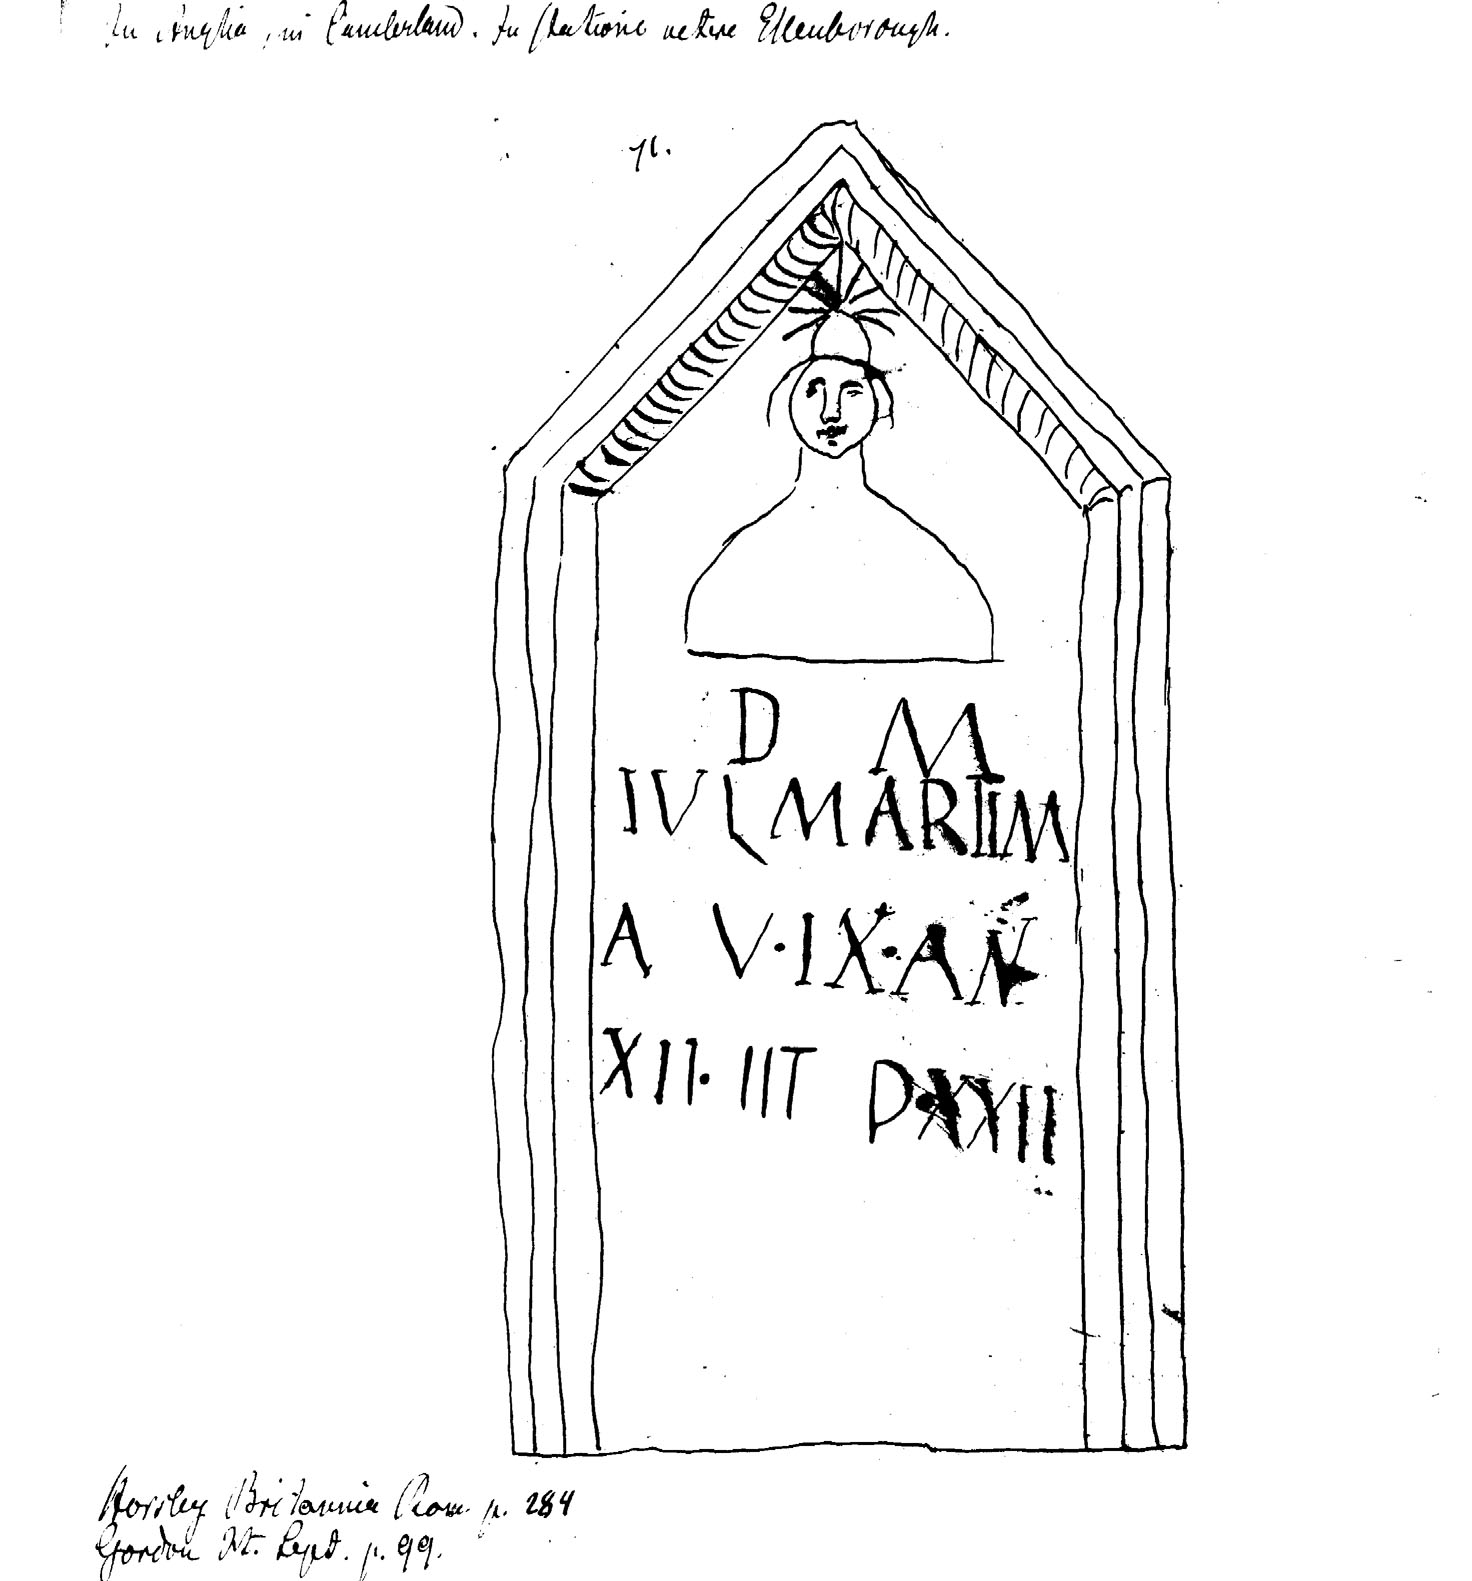 In Anglia, in Cumberland. In statione vetere Ellenborough.
71.
D M
IVL MARTIM
A V·IX·AN
XII·IIT D·XXII
Horsley Britannia Rom. p. 284
Gordon It. Sept. p. 99.